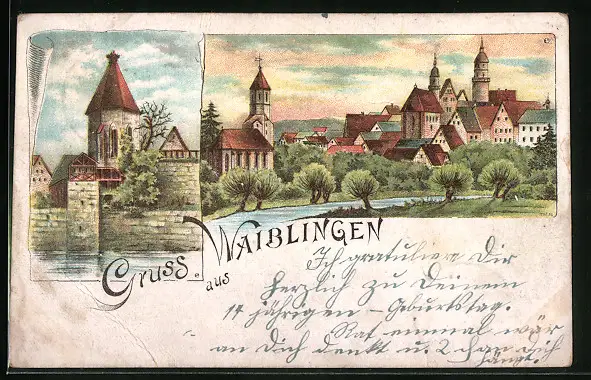 Gruss aus
WAIBLINGEN
Ich gratuliere Dir
herzlich zu Deinem
14 jährigen - Geburtstag.
Rat einmal wär
an Dich denkt u. 2